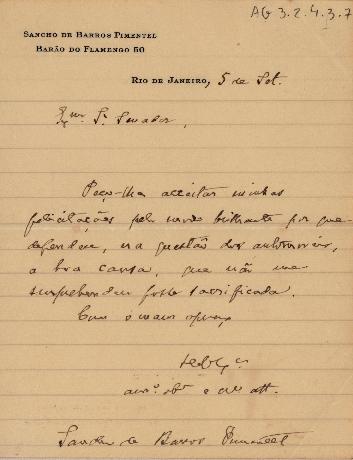 AG 3.2.4.3.7
SANCHO DE BARROS PIMENTEL
BARÃO DO FLAMENGO 50
RIO DE JANEIRO, 5 de Set.
Exmo. Sr. Senador,
Peço-lhe acceitar minhas
felicitações pelo modo brilhante por que
defendeu, na questão dos
a boa causa, que não me
surprehendeu fosse sacrificada.
Com o maior apreço
amo. obr. e att.
Sancho de Barros Pimentel